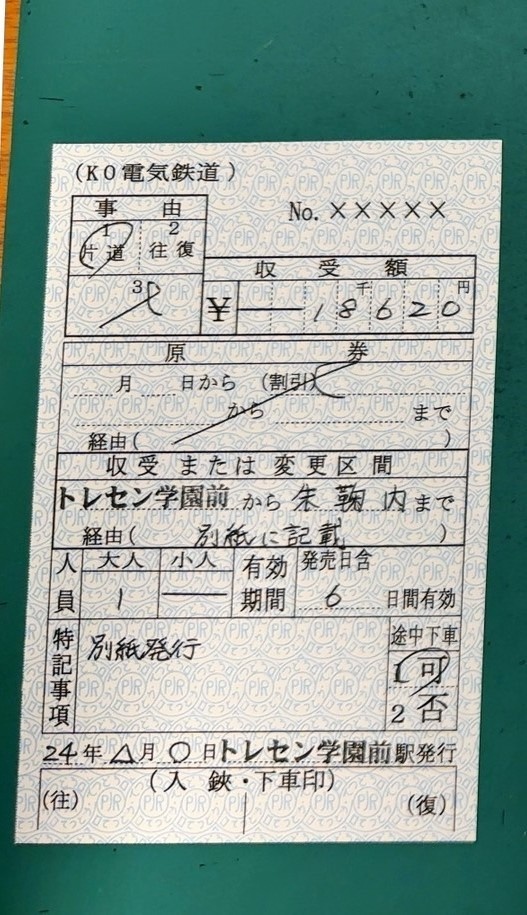 (KO電気鉄道)
事 由
No. ×××××
1 2
片道 往復
3
収 受 額
千 円
¥ — 18620
原 券
月 日から (割引)
から まで
経由( )
収受 または 変更区間
トレセン学園前 から 朱鞠内 まで
経由( 別紙に記載 )
人員 大人 小人 有効期間 発売日含
1 — 6 日間有効
特記事項 別紙発行 途中下車
1 可
2 否
24年 △月 〇日 トレセン学園前 駅発行
(入 鋏・下車印)
(往) (復)